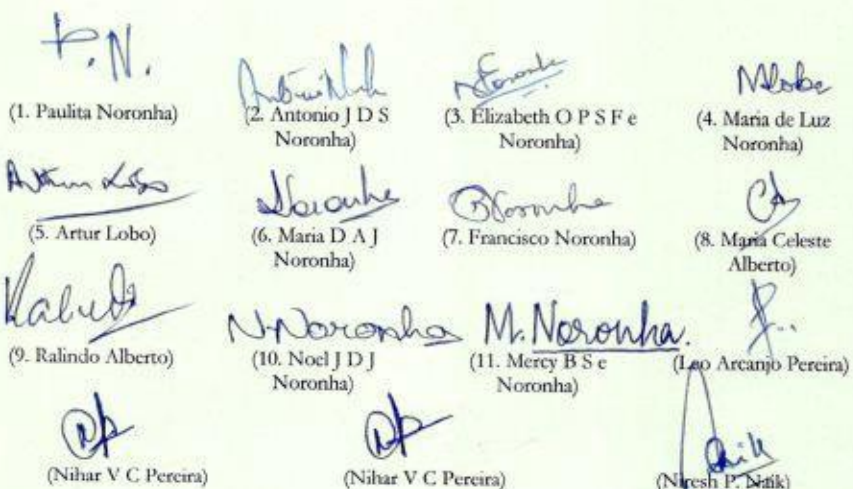 P.N.
(1. Paulita Noronha)
(2. Antonio J D S
Noronha)
(3. Elizabeth O P S F e
Noronha)
(4. Maria de Luz
Noronha)
Artur Lobo
(5. Artur Lobo)
Noronha
(6. Maria D A J
Noronha)
Noronha
(7. Francisco Noronha)
(8. Maria Celeste
Alberto)
(9. Ralindo Alberto)
N. Noronha
(10. Noel J D J
Noronha)
M. Noronha.
(11. Mercy B S e
Noronha)
(Leo Arcanjo Pereira)
(Nihar V C Pereira)
(Nihar V C Pereira)
Naik
(Niresh P. Naik)